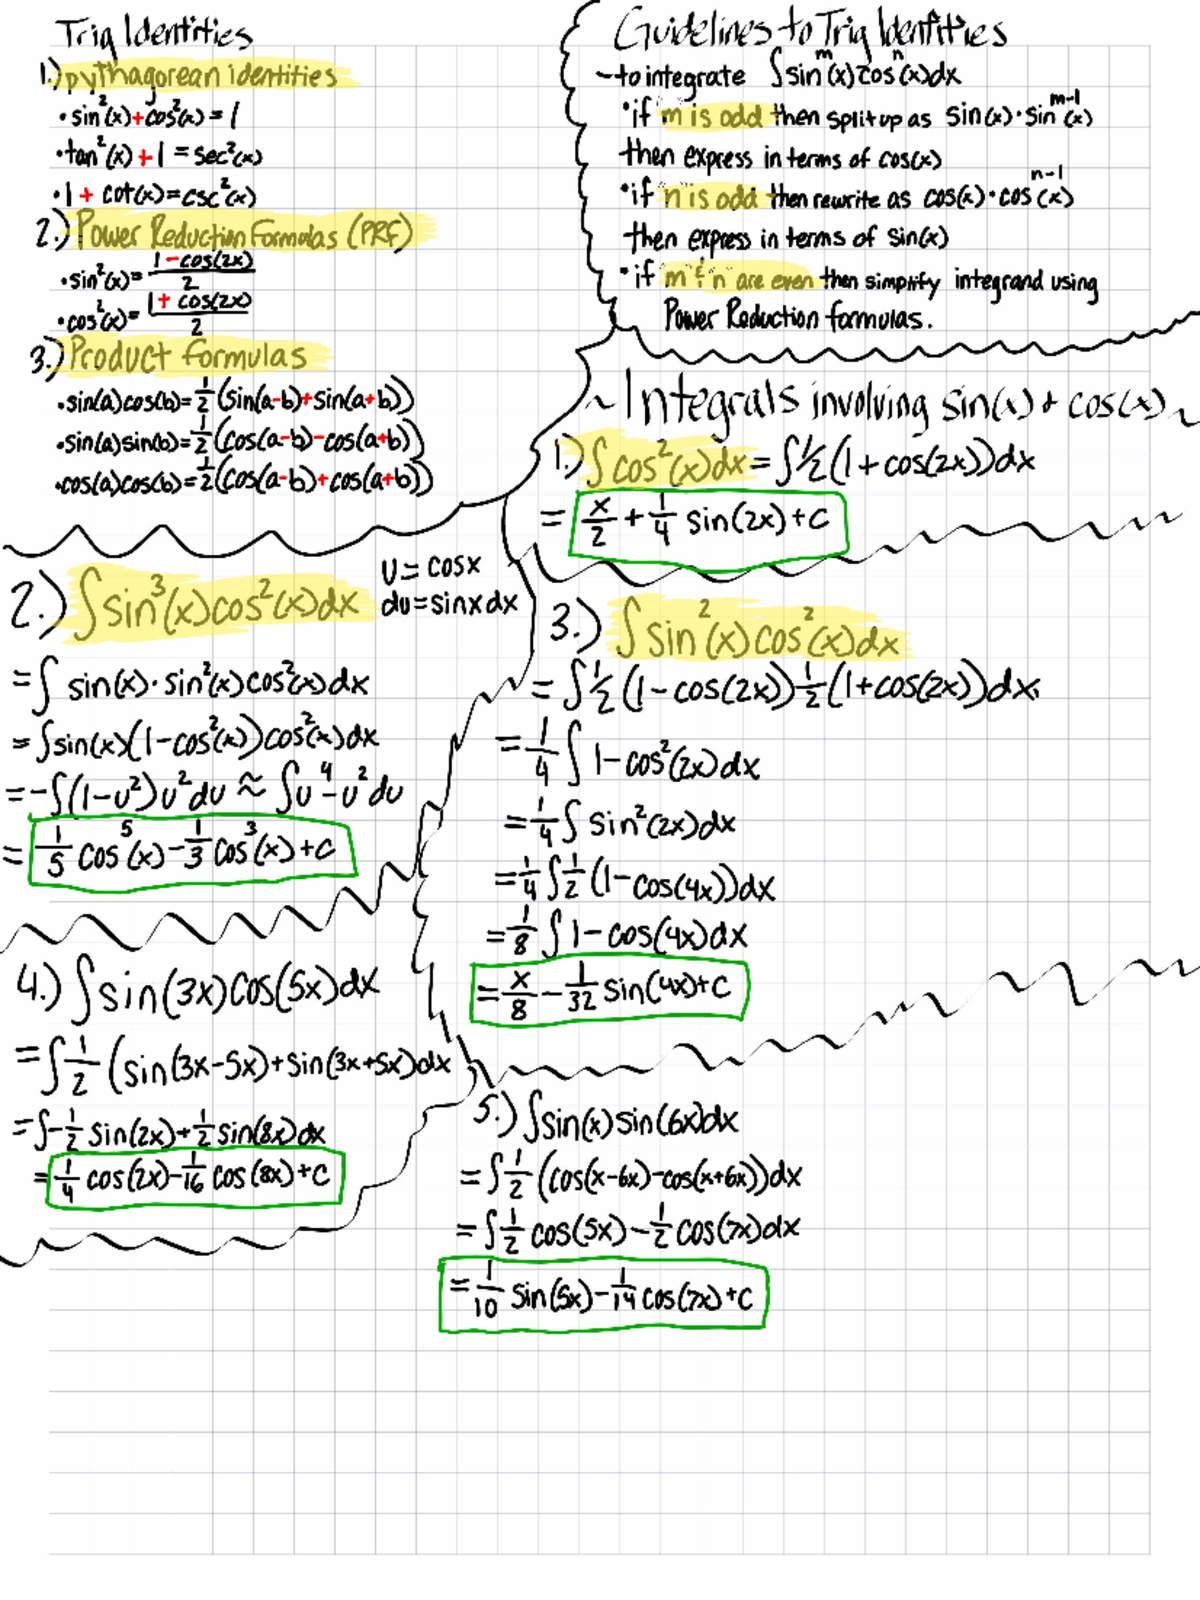 Trig Identities
1.) pythagorean identities
• sin²(x)+cos²(x) = 1
• tan²(x) + 1 = sec²(x)
• 1 + cot(x) = csc²(x)
2.) Power Reduction Formulas (PRF)
• sin²(x) = (1 - cos(2x))/2
• cos²(x) = (1 + cos(2x))/2
3.) Product formulas
• sin(a)cos(b) = 1/2 (sin(a-b)+sin(a+b))
• sin(a)sin(b) = 1/2 (cos(a-b)-cos(a+b))
• cos(a)cos(b) = 1/2 (cos(a-b)+cos(a+b))
Guidelines to Trig Identities
~to integrate ∫sin^m(x)cos^n(x)dx
• if "m" is odd then split up as sin(x)·sin^(m-1)(x)
then express in terms of cos(x)
• if "n" is odd then rewrite as cos(x)·cos^(n-1)(x)
then express in terms of sin(x)
• if "m" & "n" are even then simplify integrand using
Power Reduction formulas.
~Integrals involving sin(x) + cos(x)~
1.) ∫cos²(x)dx = ∫1/2(1+cos(2x))dx
= x/2 + 1/4 sin(2x)+C
2.) ∫sin³(x)cos²(x)dx
u = cosx
du = sinxdx
= ∫ sin(x)·sin²(x)cos²(x)dx
= ∫sin(x)(1-cos²(x))cos²(x)dx
= -∫(1-u²)u²du ≈ ∫u⁴-u²du
= 1/5 cos⁵(x) - 1/3 cos³(x)+C
3.) ∫sin²(x)cos²(x)dx
= ∫1/2(1-cos(2x))1/2(1+cos(2x))dx
= 1/4 ∫ 1-cos²(2x)dx
= 1/4 ∫ sin²(2x)dx
= 1/4 ∫1/2(1-cos(4x))dx
= 1/8 ∫ 1-cos(4x)dx
= x/8 - 1/32 sin(4x)+C
4.) ∫sin(3x)cos(5x)dx
= ∫1/2 (sin(3x-5x)+sin(3x+5x)dx
= ∫-1/2 sin(2x)+1/2 sin(8x)dx
= 1/4 cos(2x)-1/16 cos(8x)+C
5.) ∫sin(x)sin(6x)dx
= ∫1/2 (cos(x-6x)-cos(x+6x))dx
= ∫1/2 cos(5x)-1/2 cos(7x)dx
= 1/10 sin(5x)-1/14 cos(7x)+C